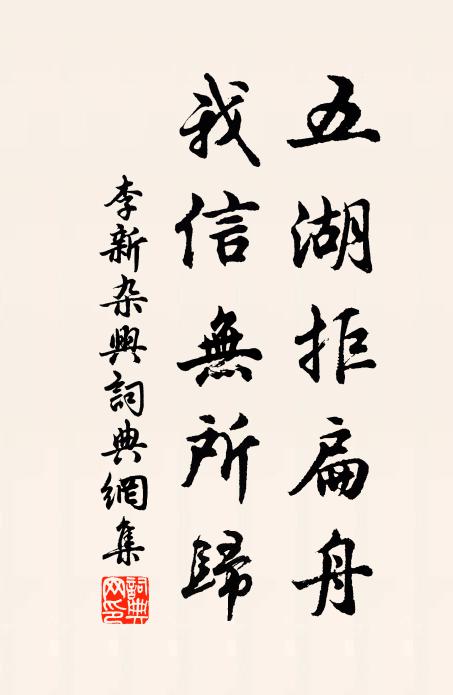 五湖拒扁舟
我信無所歸
李新杂興詞典網集
詞典网印